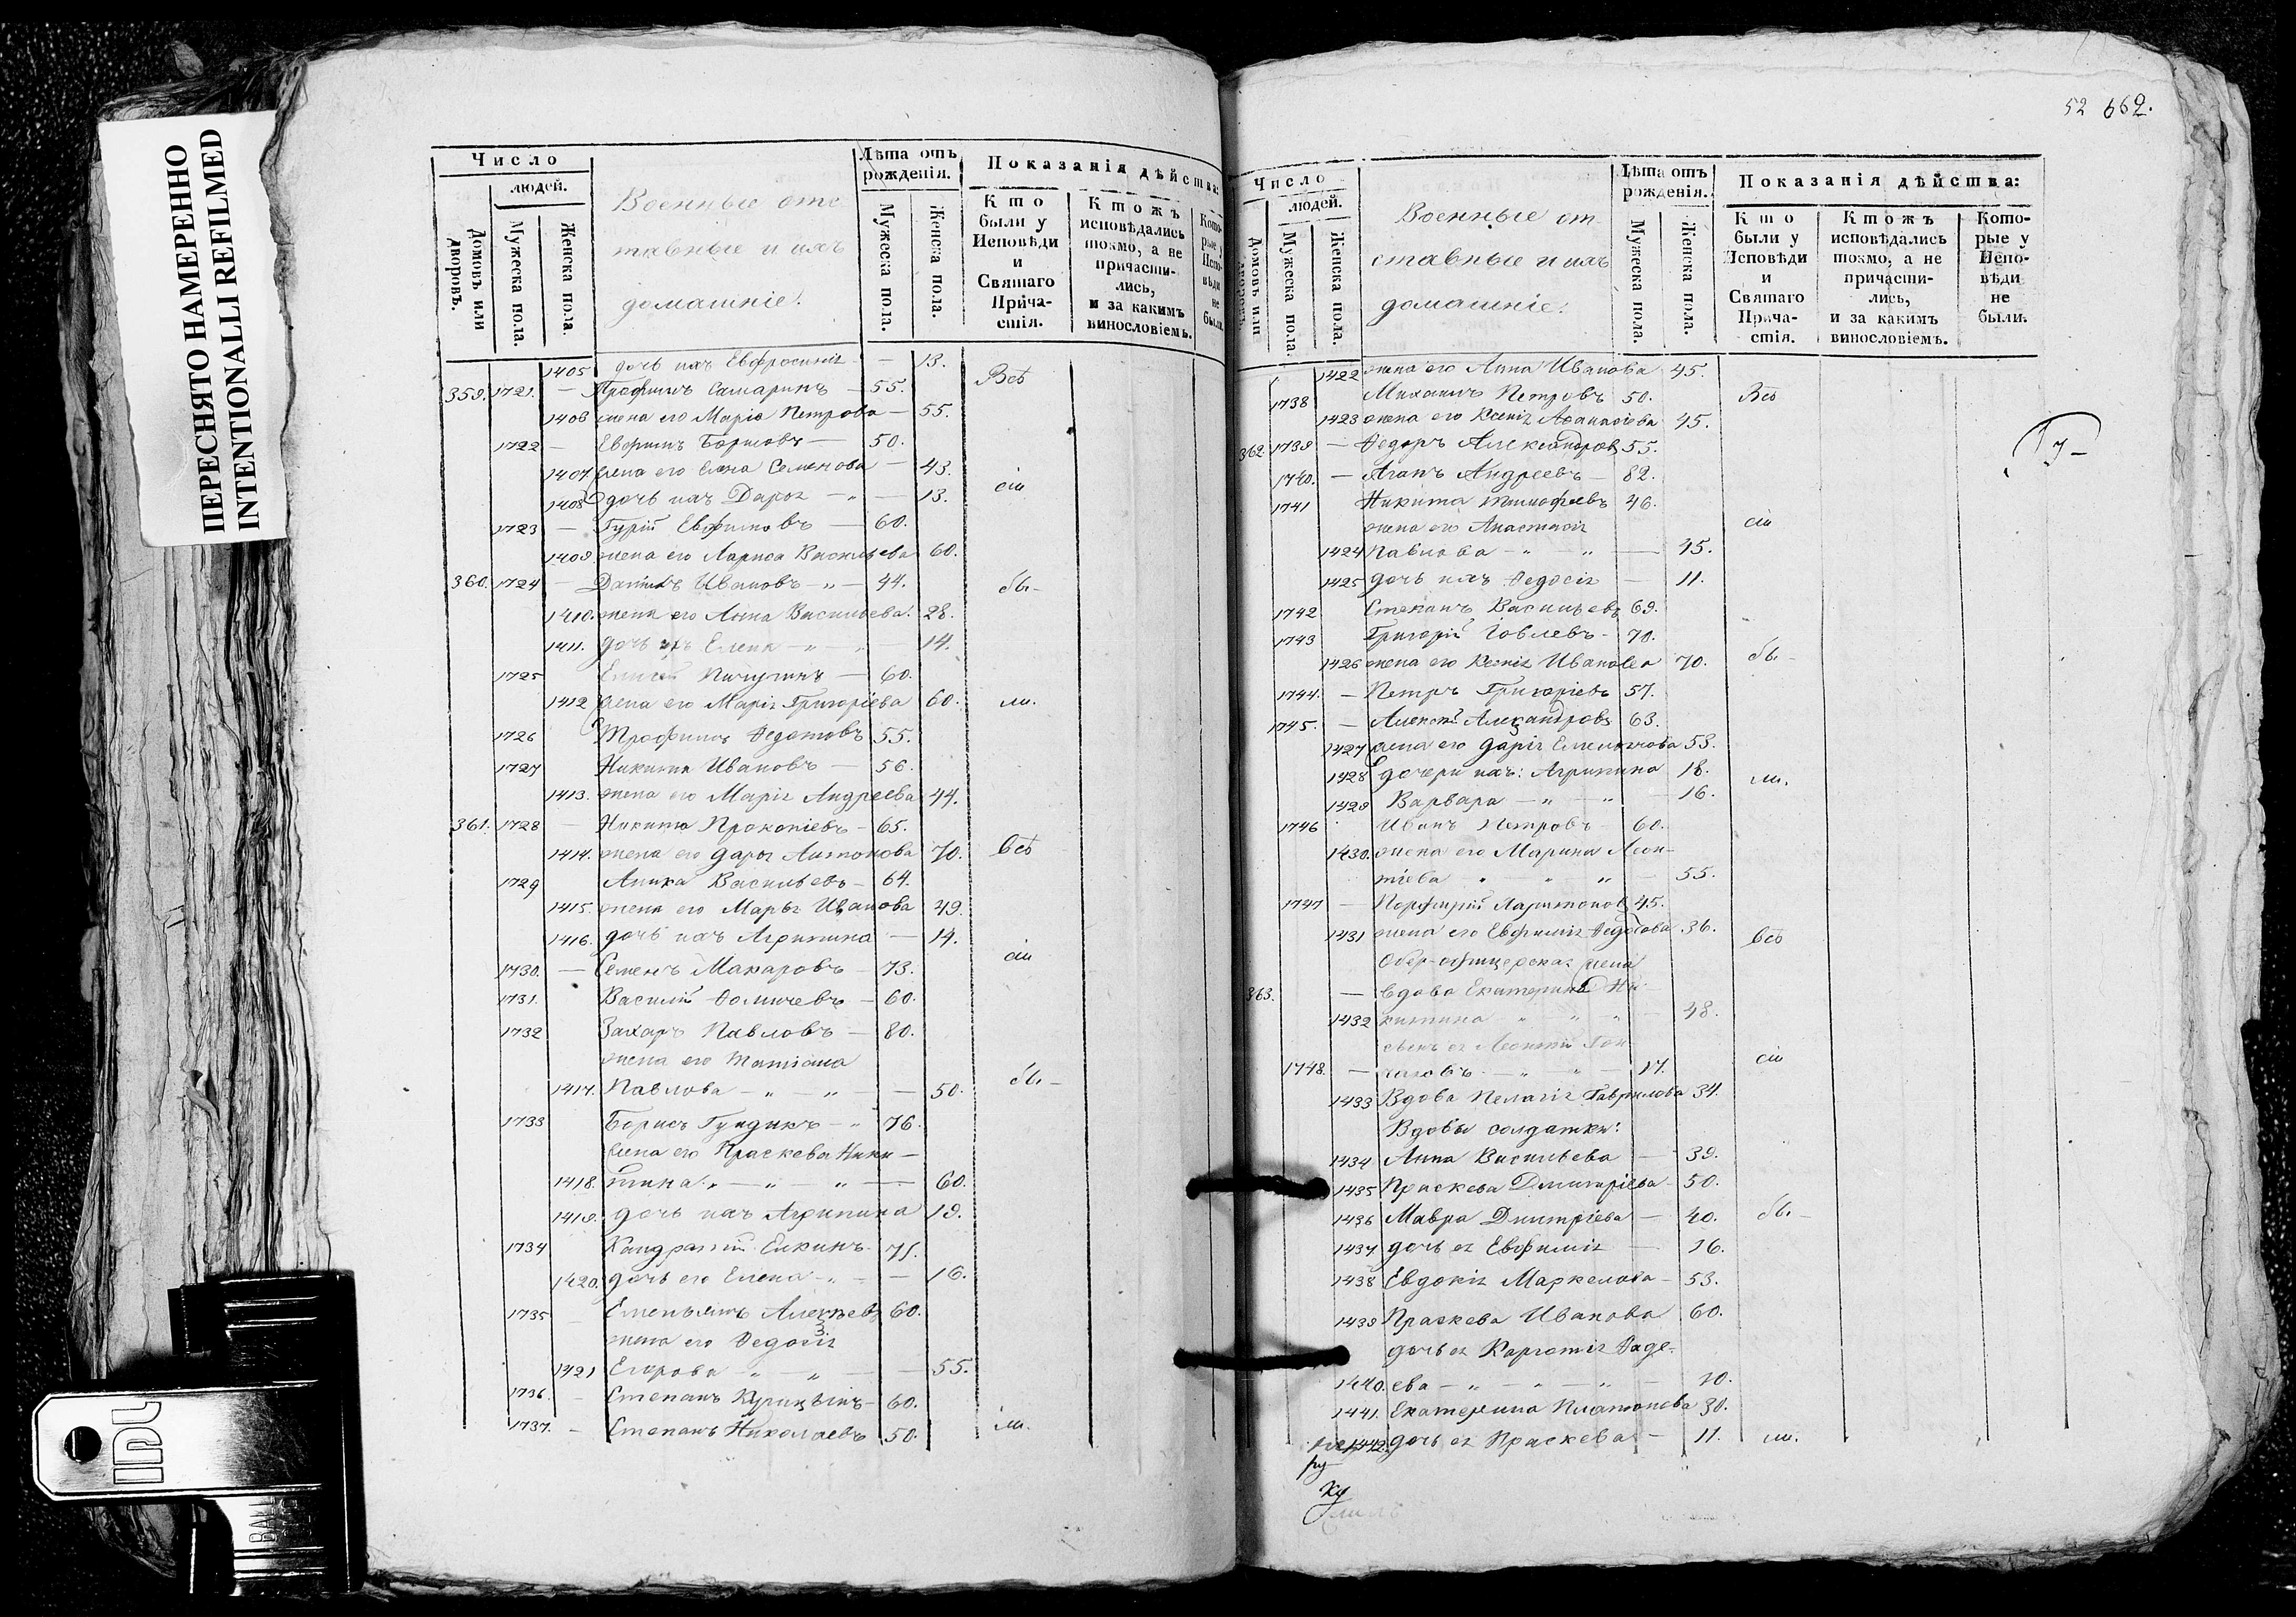 ПЕРЕСНЯТО НАМЕРЕННО
INTENTIONALLI REFILMED
Число
людей.
Домовъ или дворовъ.
Мужеска пола.
Женска пола.
Военные отс
тавные и ихъ
домашніе.
Лѣта отъ рожденія.
Мужеска пола.
Женска пола.
Показанія дѣйства:
Кто были у Исповѣди и Святаго Причастія.
Ктожъ исповѣдались токмо, а не причастились, и за какимъ винословіемъ.
Которые у Исповѣди не были.
1405 дочь ихъ Евфросинія — 13.
359. 1721. — Трофимъ Самаринъ — 55. Всѣ
1406 жена его Марія Петрова — 55.
1722 — Евфимъ Борисовъ — 50.
1407 жена его Елена Семенова — 43.
1408 дочь ихъ Дарья — 13. сіи
1723 — Гурій Евфимовъ — 60.
1409 жена его Лариса Васильева 60.
360. 1724 — Даніилъ Ивановъ — 44. бы-
1410. жена его Анна Васильева. 28.
1411. дочь ихъ Елена — 14.
1725 Пичугинъ — 60.
1412 жена его Марія Григоріева 60. ли.
1726 Трофимъ Федотовъ 55.
1727 Никита Ивановъ — 56.
1413. жена его Марія Андреева 44.
361. 1728 — Никита Прокопіевъ — 65.
1414. жена его Дарья Антонова 70. всѣ
1729 Аника Васильевъ — 64.
1415. жена его Марья Иванова 49.
1416. дочь ихъ Агрипина — 14.
1730. — Семенъ Макаровъ — 73. сіи
1731. Василій Фомичевъ — 60.
1732 Захаръ Павловъ — 80.
жена его Татіана
1417. Павлова — 50. бы-
1733 Борисъ Гундинъ — 76.
жена его Праскева Ники-
1418. тина — 60.
1419. дочь ихъ Агрипина 19.
1734 Кандратій Елкинъ 75.
1420. дочь его Елена — 16.
1735 Емельянъ Алексѣевъ 60.
жена его Федосія
1421 Егорова — 55.
1736. — Степанъ Курицынъ — 60.
1737. — Степанъ Николаевъ 50. ли.
52 662.
Число
людей.
Домовъ или
Мужеска пола.
Женска пола.
Военные от
ставные и ихъ
домашніе.
Лѣта отъ рожденія.
Мужеска пола.
Женска пола.
Показанія дѣйства:
Кто были у Исповѣди и Святаго Причастія.
Ктожъ исповѣдались токмо, а не причастились, и за какимъ винословіемъ.
Которые у Исповѣди не были.
1422 жена его Анна Иванова 45.
1738 Михаилъ Петровъ 50. Всѣ
1423 жена его Ксенія Афанасіева 45.
362 1739 — Федоръ Александровъ 55.
1740. — Агапъ Андреевъ — 82.
1741 Никита Тимофеевъ 46.
жена его Анастасія сіи
1424 Павлова — 45.
1425 дочь ихъ Федосія — 11.
1742 Степанъ Васильевъ 69.
1743 Григорій Іовлевъ — 70.
1426 жена его Ксенія Иванова 70. бы-
1744. — Петръ Григоріевъ 57.
1745. — Алексѣй Александровъ 63.
1427 жена его Дарія Емельянова 53.
1428 дочери ихъ: Агрипина 18. ли.
1429 Варвара — 16.
1746 Иванъ Петровъ 60.
1430. жена его Марина Леон-
тіева — 55.
1747 — Порфирій Ларионовъ 45.
1431 жена его Евфимія Федотова 36. всѣ
Обер-офицерская жена
363. — вдова Екатерина Ни-
1432 китина — 48.
сынъ ея Леонтій сіи
1748. — 17.
1433 Вдова Пелагія Гаврилова 34.
Вдовы солдатки:
1434 Анна Васильева — 39.
1435 Праскева Дмитріева — 50.
1436 Мавра Дмитріева — 40. бы-
1437 дочь ея Евфимія — 16.
1438 Евдокія Маркелова — 53.
1439 Праскева Иванова 60.
дочь ея Фаде-
1440. ева — 20.
1441. Екатерина Платонова 30.
1442. дочь ея Праскева — 11. ли.
ру
ку